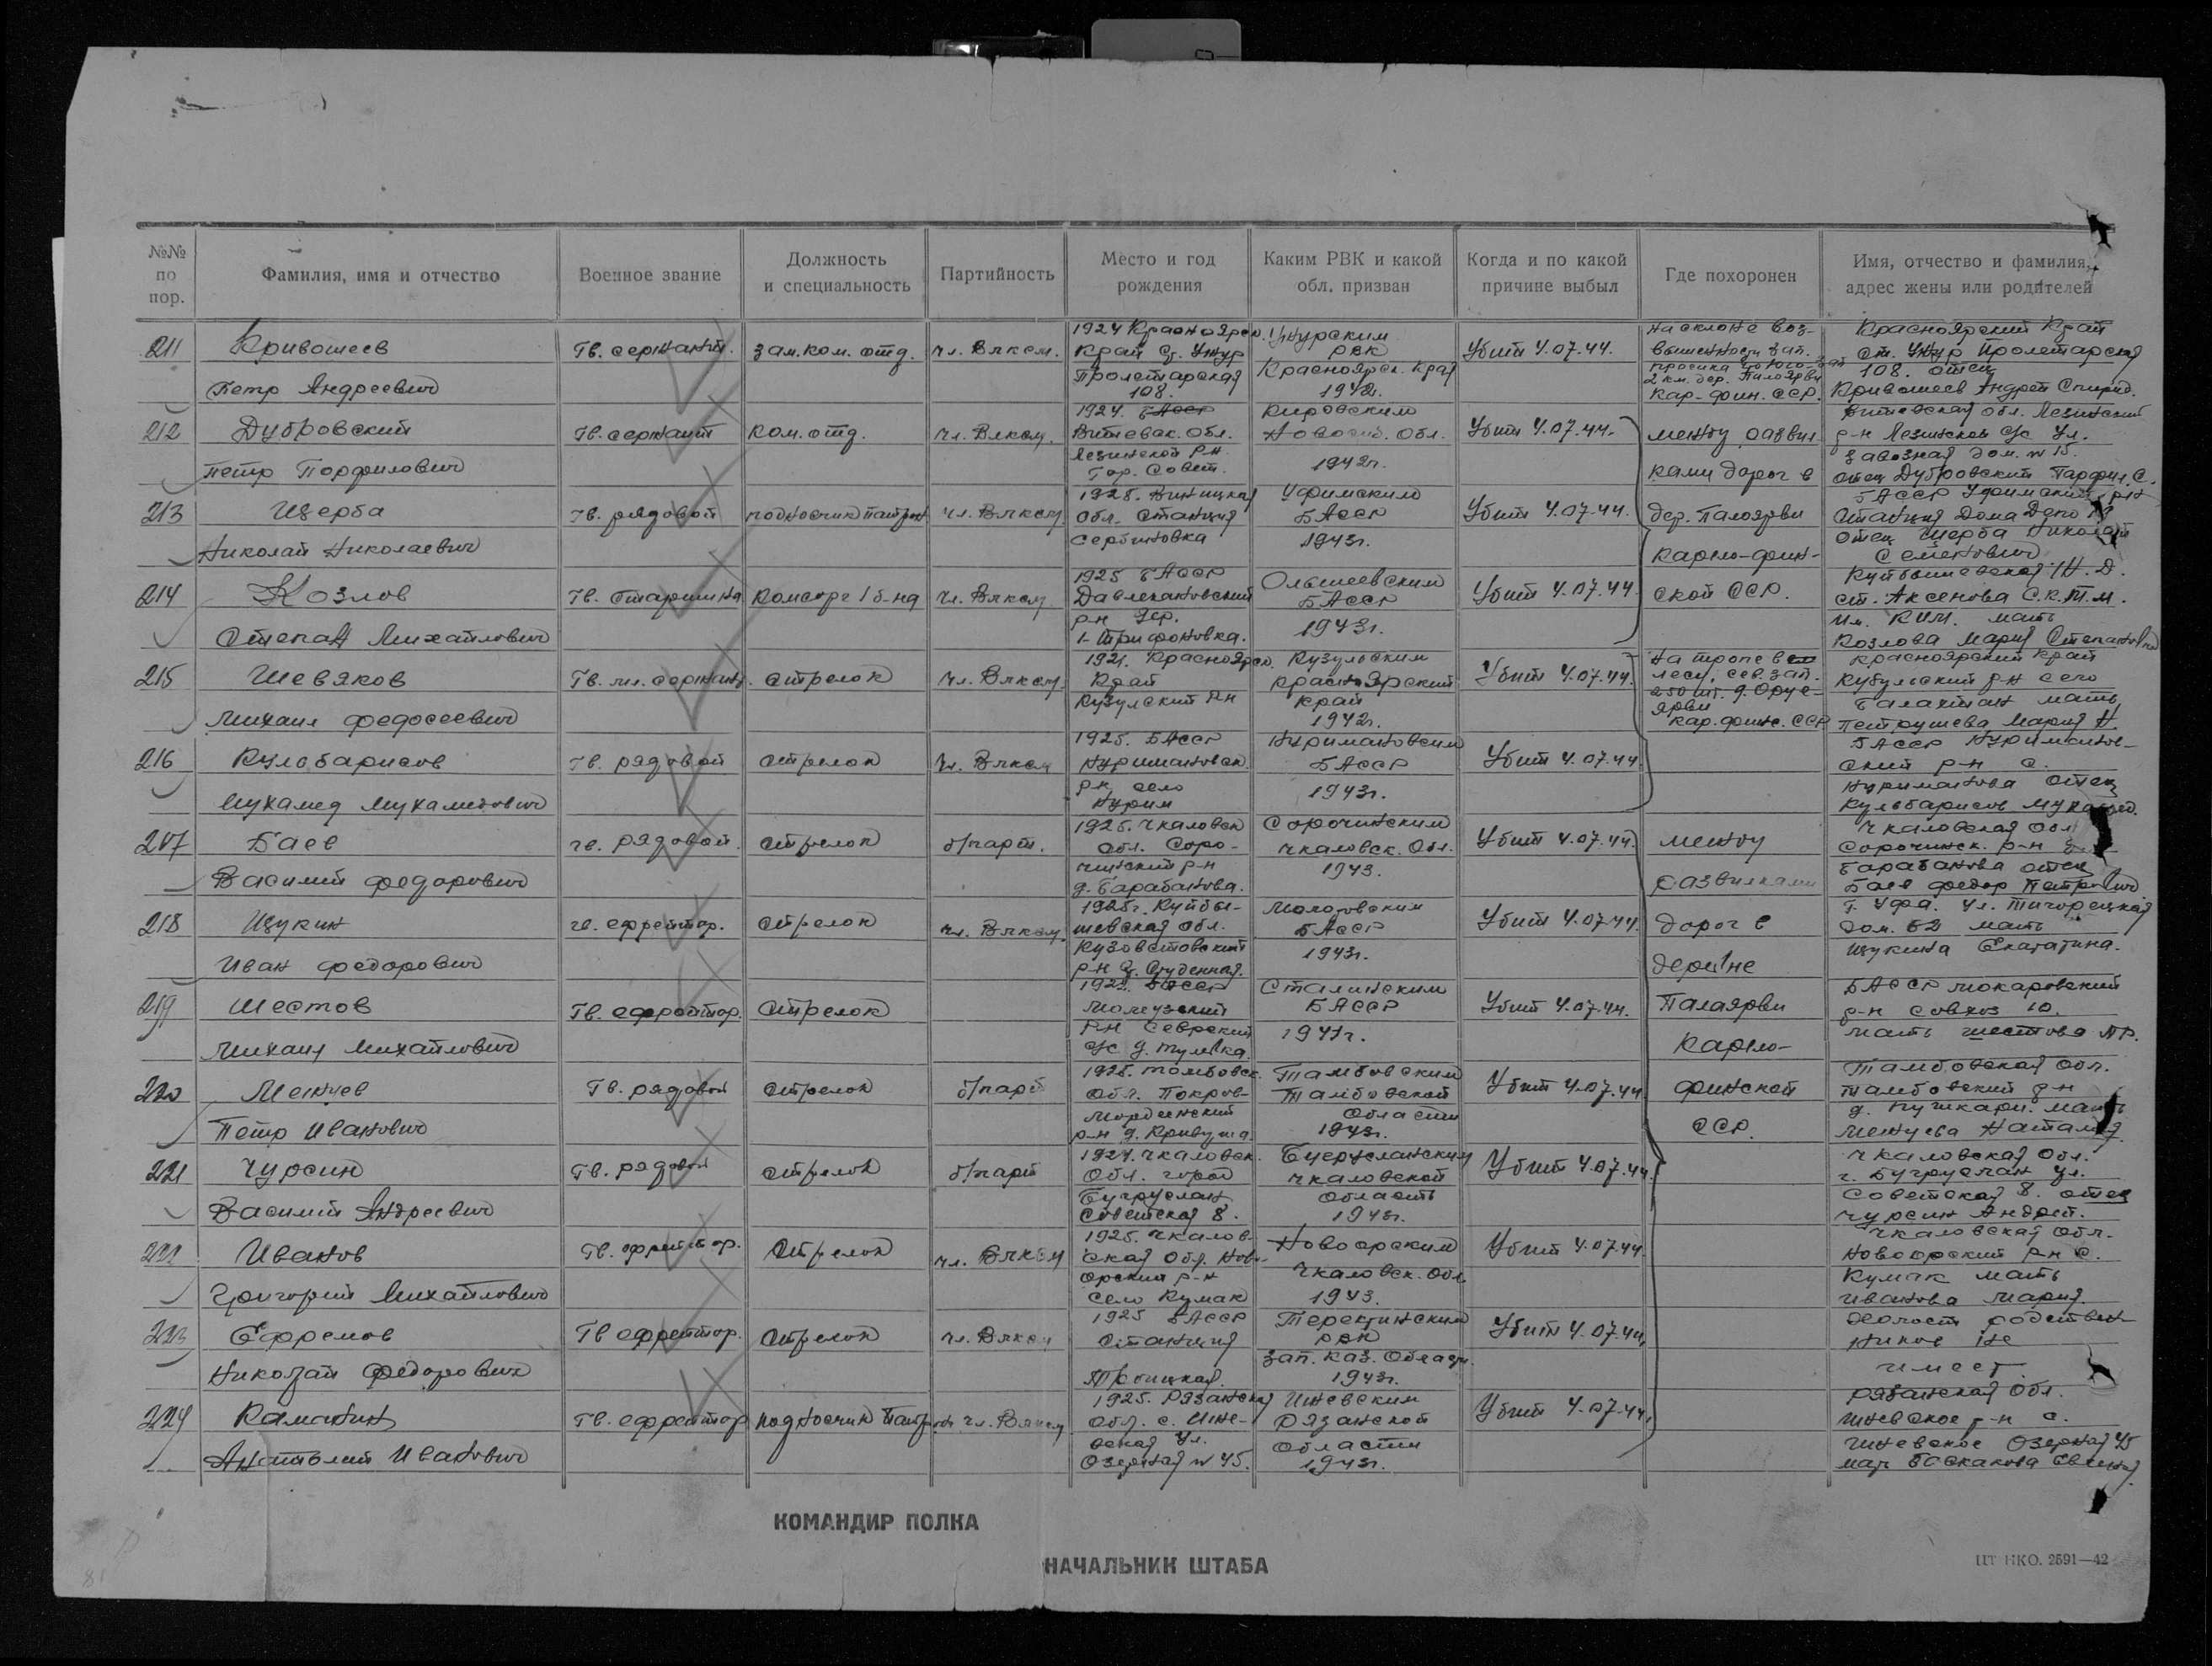 №№ по пор.
Фамилия, имя и отчество
Военное звание
Должность и специальность
Партийность
Место и год рождения
Каким РВК и какой обл. призван
Когда и по какой причине выбыл
Где похоронен
Имя, отчество и фамилия, адрес жены или родителей
211 Кривошеев Гв. сержант. зам. ком. отд. чл. Влксм. 1924 Красноярск. Ужурским Убит 4.07.44. на склоне воз- Красноярский Край
Край ст. Ужур РВК вышенности зап. ст. Ужур Пролетарская
Петр Андреевич Пролетарская Красноярск. Край 108. отец
108. 1942г. Кар-фин. ССР. Кривошеев Андрей Спирид.
212 Дубровский Гв. сержант ком. отд. чл. Влксм. 1924. Кировским Убит 4.07.44. между развил-
Витебск. Обл. Новосиб. Обл. р-н
Петр Порфилович Гор. Совет. 1942г. ками дорог в Завозная дом. № 15.
отец Дубровский Парфил. С.
213 Щерба Гв. рядовой подносчик патрон чл. Влксм 1925. Виницкая Уфимским Убит 4.07.44. дер. Палоярви БАССР Уфимский р-н
Обл. Станция БАССР Станция Дома
Николай Николаевич Сербиновка 1943г. Карело-фин- отец Щерба Николай
Семенович
214 Козлов Гв. Старшина Комсорг 1 б-на чл. Влксм 1925 БАССР Ольшеевским Убит 4.07.44 ской ССР. Куйбышевская Ж.Д.
Давлекановский БАССР ст. Аксенова
Степан Михайлович р-н дер. 1943г. Им. КИМ. мать
1-Трифоновка. Козлова Мария Степановна
215 Шевяков Гв. мл. сержант. стрелок чл. Влксм. 1921. Красноярск. Кузульским Убит 4.07.44. на тропе в Красноярский Край
Край Красноярский лесу, сев. зап. р-н село
Михаил Федосеевич Кузулский р-н край 250 мт. д. Орус- мать
1942г. ярви Кар. финс. ССР Петрушева Мария Н.
216 Кульбарисов гв. рядовой стрелок чл. Влксм 1925. БАССР Нуримановским Убит 4.07.44. БАССР Нуриманов-
Нуримановск. БАССР ский р-н с.
Мухамед Мухаметович р-н, село 1943г. Нуриманова отец
Нурим Кульбарисов
217 Баев гв. рядовой. стрелок б/парт. 1925. Чкаловск Сорочинским Убит 4.07.44. между Чкаловская Обл
Обл. Соро- Чкаловск. Обл. Сорочинск. р-н
Василий Федорович чинский р-н 1943. развилками Барабанова отец
д. Барабанова. Баев Федор Петрович
218 Щукин гв. ефрейтор. стрелок чл. Влксм. 1925г. Куйбы- Убит 4.07.44. дорог в г. Уфа. ул.
шевская обл. БАССР Дом. 52 мать
Иван Федорович Кузоватовский 1943г. деревне Щукина
р-н
219 Шестов Гв. ефрейтор. стрелок Сталинским Убит 4.07.44. Палаярви БАССР
БАССР р-н совхоз
Михаил Михайлович р-н Карело- мать Шестова
220 Менчев Гв. рядовой стрелок б/парт 1925. Тамбовск. Тамбовским Убит 4.07.44 финской Тамбовская обл.
Обл. Покров- Тамбовской Тамбовский р-н
Петр Иванович р-н д. Кривуша. Области ССР. д. Пушкари. мать
1943г. Наталья
221 Чурсин Гв. рядовой стрелок б/парт 1924. Чкаловск. Бугурусланским Убит 4.07.44. Чкаловская Обл.
Обл. город Чкаловской г. Бугруслан ул.
Василий Андреевич Бугруслан Область Советская 8. отец
Советская 8. 1943г. Чурсин Андрей.
222 Иванов Гв. ефрейтор. стрелок чл. Влксм 1925. Чкалов- Новоорским Убит 4.07.44. Чкаловская обл.
ская Обл. Ново- Новоорский р-н с.
Григорий Михайлович орский р-н Чкаловск. Обл. Кумак мать
село Кумак 1943. Иванова Мария.
223 Ефремов Гв ефрейтор. стрелок чл. Влксм 1925 БАССР Убит 4.07.44. родствен-
Станция РВК ников не
Николай Федорович зап. Каз. Област. имеет
Троицкая. 1943г.
224 Каманин Гв. ефрейтор подносчик патрон чл. Влксм 1925. Рязанская Ижевским Убит 4.07.44. Рязанская Обл.
Обл. с. Иже- Рязанской Ижевское р-н с.
Анатолий Иванович вская ул. Области Ижевское Озерная 45
Озерная № 45. 1943г. мать Баскакова
КОМАНДИР ПОЛКА
НАЧАЛЬНИК ШТАБА
ЦТ НКО. 2591—42